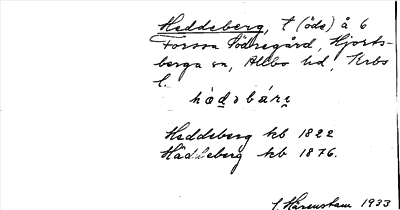 Heddeberg, t (öde) å 6
Forssa Södregård, Hjorts-
berga sn, Allbo hd, Krbs
l.
hɑ̀dəbær̨ı
Heddeberg kb 1822
Häddeberg kb 1876.
J. Hårenstam 1933